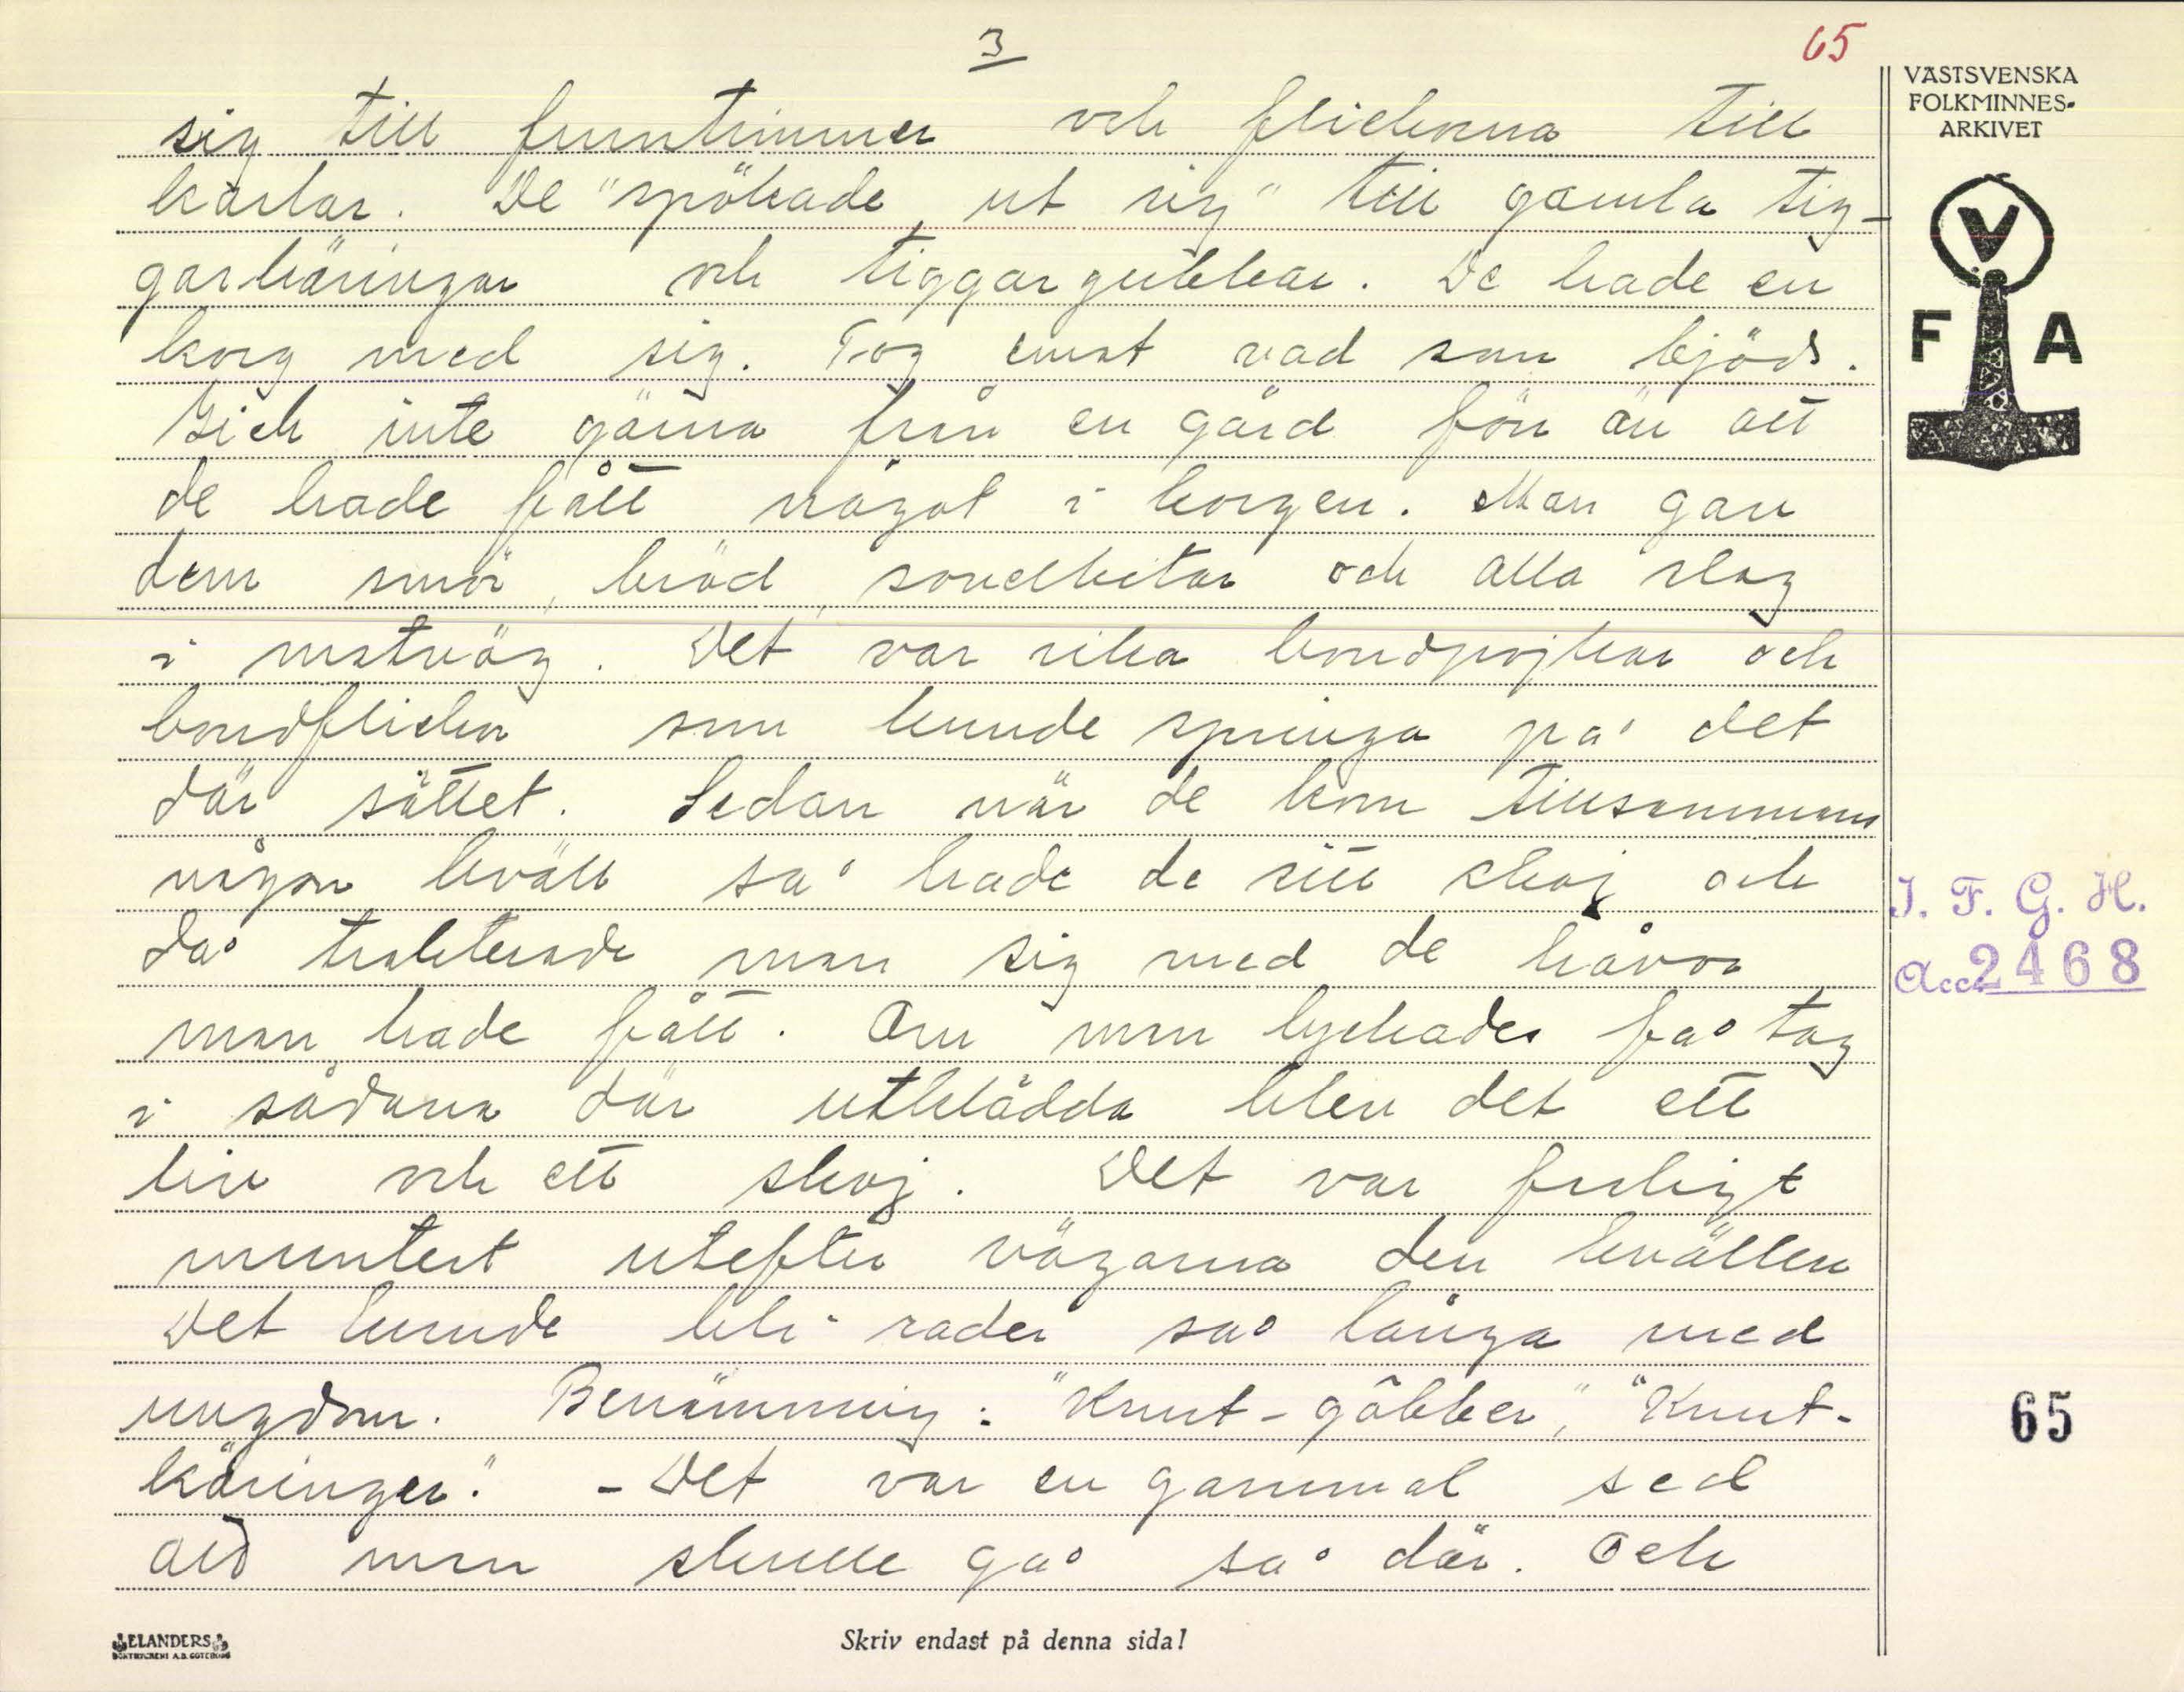 3
65
VÄSTSVENSKA
FOLKMINNES-
ARKIVET
V
F A
sig till fruntimmer och flickorna till
karlar. De "spökade ut sig" till gamla tig-
garkäringar och tiggargubbar. De hade en
korg med sig. Tog emot vad som bjöds.
Gick inte gärna från en gård förr än att
de hade fått något i korgen. Man gav
dem smör, bröd, sovelbitar och alla slag
i matväg. Det var rika bondpojkar och
bondflickor som kunde springa på det
där sättet. Sedan när de kom tillsammans
någon kväll så hade de sitt skoj och
då trakterade man sig med de håvor
man hade fått. Om man lyckades få tag
i sådana där utklädda blev det ett
liv och ett skoj. Det var farligt
muntert utefter vägarna den kvällen
Det kunde bli rader så långa med
ungdom. Benämning: "Knut-göbber", "Knut-
käringer." - Det var en gammal sed
att man skulle gå så där. Och
I. F. G. H.
Acc. 2468
65
ELANDERS
BOKTRYCKERI A.B. GÖTEBORG
Skriv endast på denna sida!